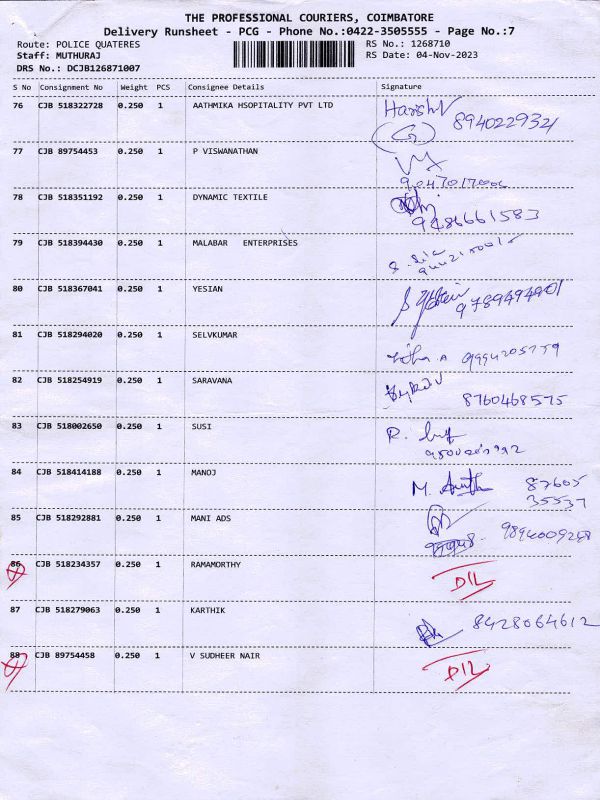 THE PROFESSIONAL COURIERS, COIMBATORE
Delivery Runsheet - PCG - Phone No.:0422-3505555 - Page No.:7
Route: POLICE QUATERES RS No.: 1268710
Staff: MUTHURAJ RS Date: 04-Nov-2023
DRS No.: DCJB126871007
S No Consignment No Weight PCS Consignee Details Signature
76 CJB 518322728 0.250 1 AATHMIKA HSOPITALITY PVT LTD
8940229321
77 CJB 89754453 0.250 1 P VISWANATHAN
78 CJB 518351192 0.250 1 DYNAMIC TEXTILE
9486661583
79 CJB 518394430 0.250 1 MALABAR ENTERPRISES
80 CJB 518367041 0.250 1 YESIAN
9789494901
81 CJB 518294020 0.250 1 SELVKUMAR
82 CJB 518254919 0.250 1 SARAVANA
8760468575
83 CJB 518002650 0.250 1 SUSI
R.
84 CJB 518414188 0.250 1 MANOJ M. 87605
35537
85 CJB 518292881 0.250 1 MANI ADS
86 CJB 518234357 0.250 1 RAMAMORTHY
87 CJB 518279063 0.250 1 KARTHIK 8428064612
88 CJB 89754458 0.250 1 V SUDHEER NAIR